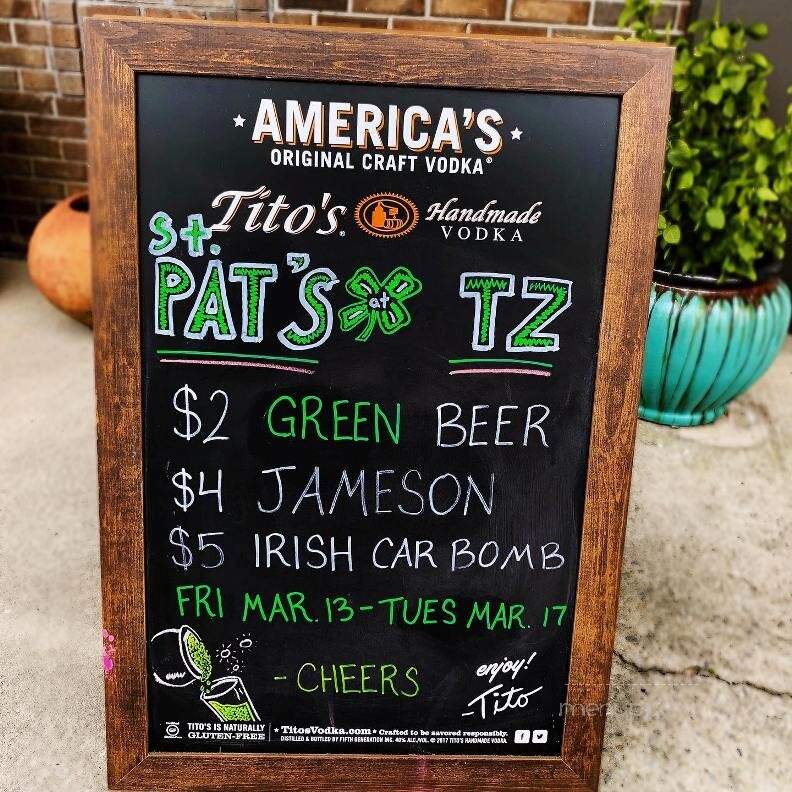 AMERICA'S
ORIGINAL CRAFT VODKA®
Tito's® Handmade
VODKA
St.
PAT'S at TZ
$2 GREEN BEER
$4 JAMESON
$5 IRISH CAR BOMB
FRI MAR. 13-TUES MAR. 17
-CHEERS
enjoy!
-Tito
TITO'S IS NATURALLY
GLUTEN-FREE
TitosVodka.com • Crafted to be savored responsibly.
DISTILLED & BOTTLED BY FIFTH GENERATION INC. 40% ALC./VOL. © 2017 TITO'S HANDMADE VODKA.